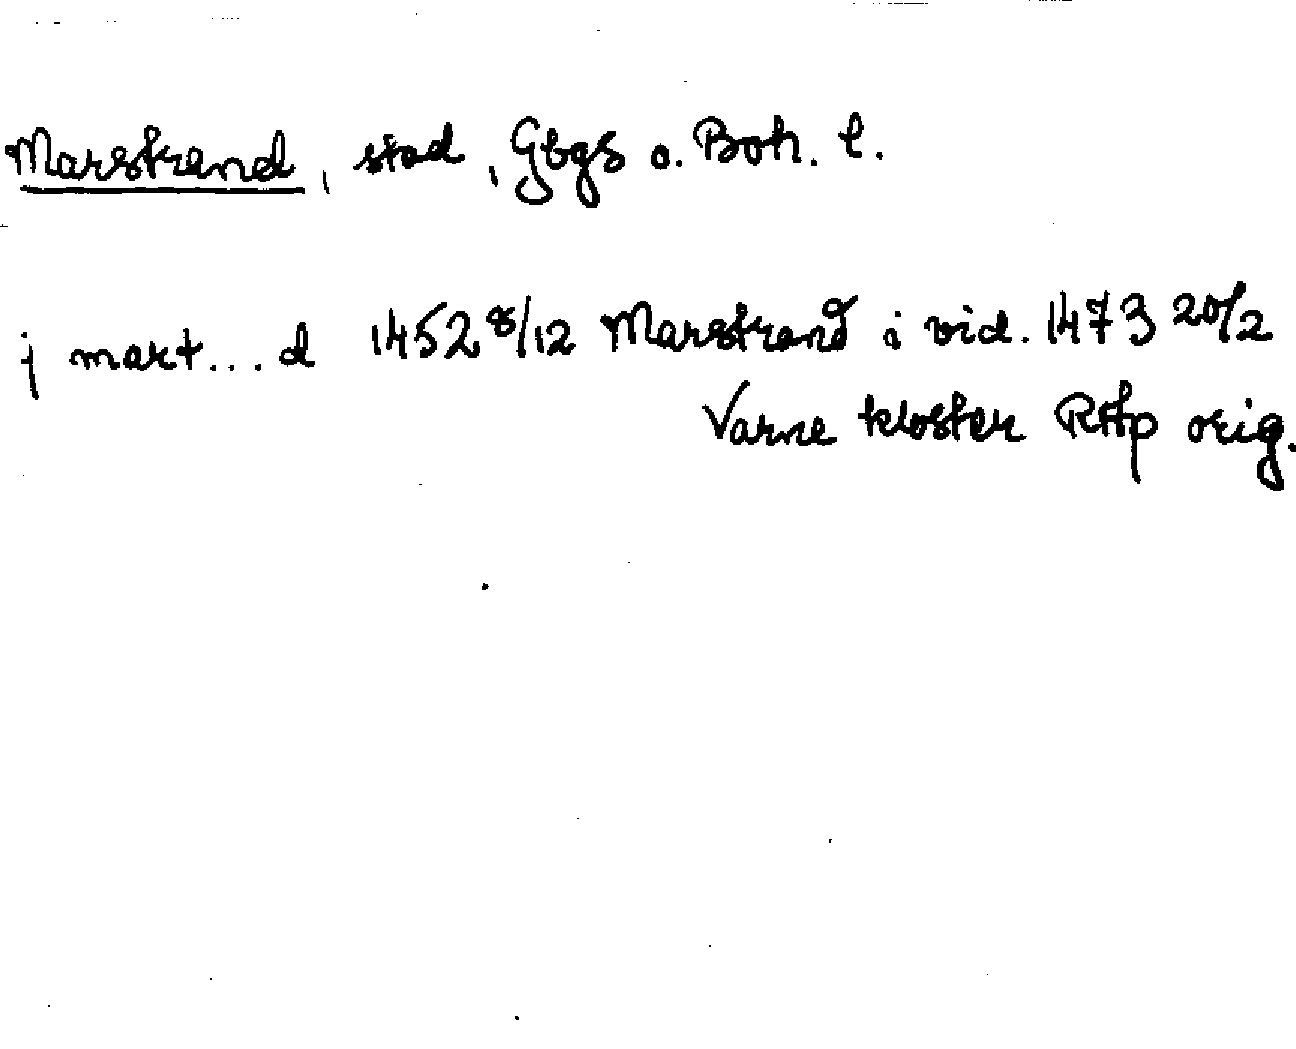 Marstrand, stad, Gbgs o. Boh. l.
j mart...d 1452 8/12 Marstrand i vid. 1473 20/2
Varne kloster RHp orig.